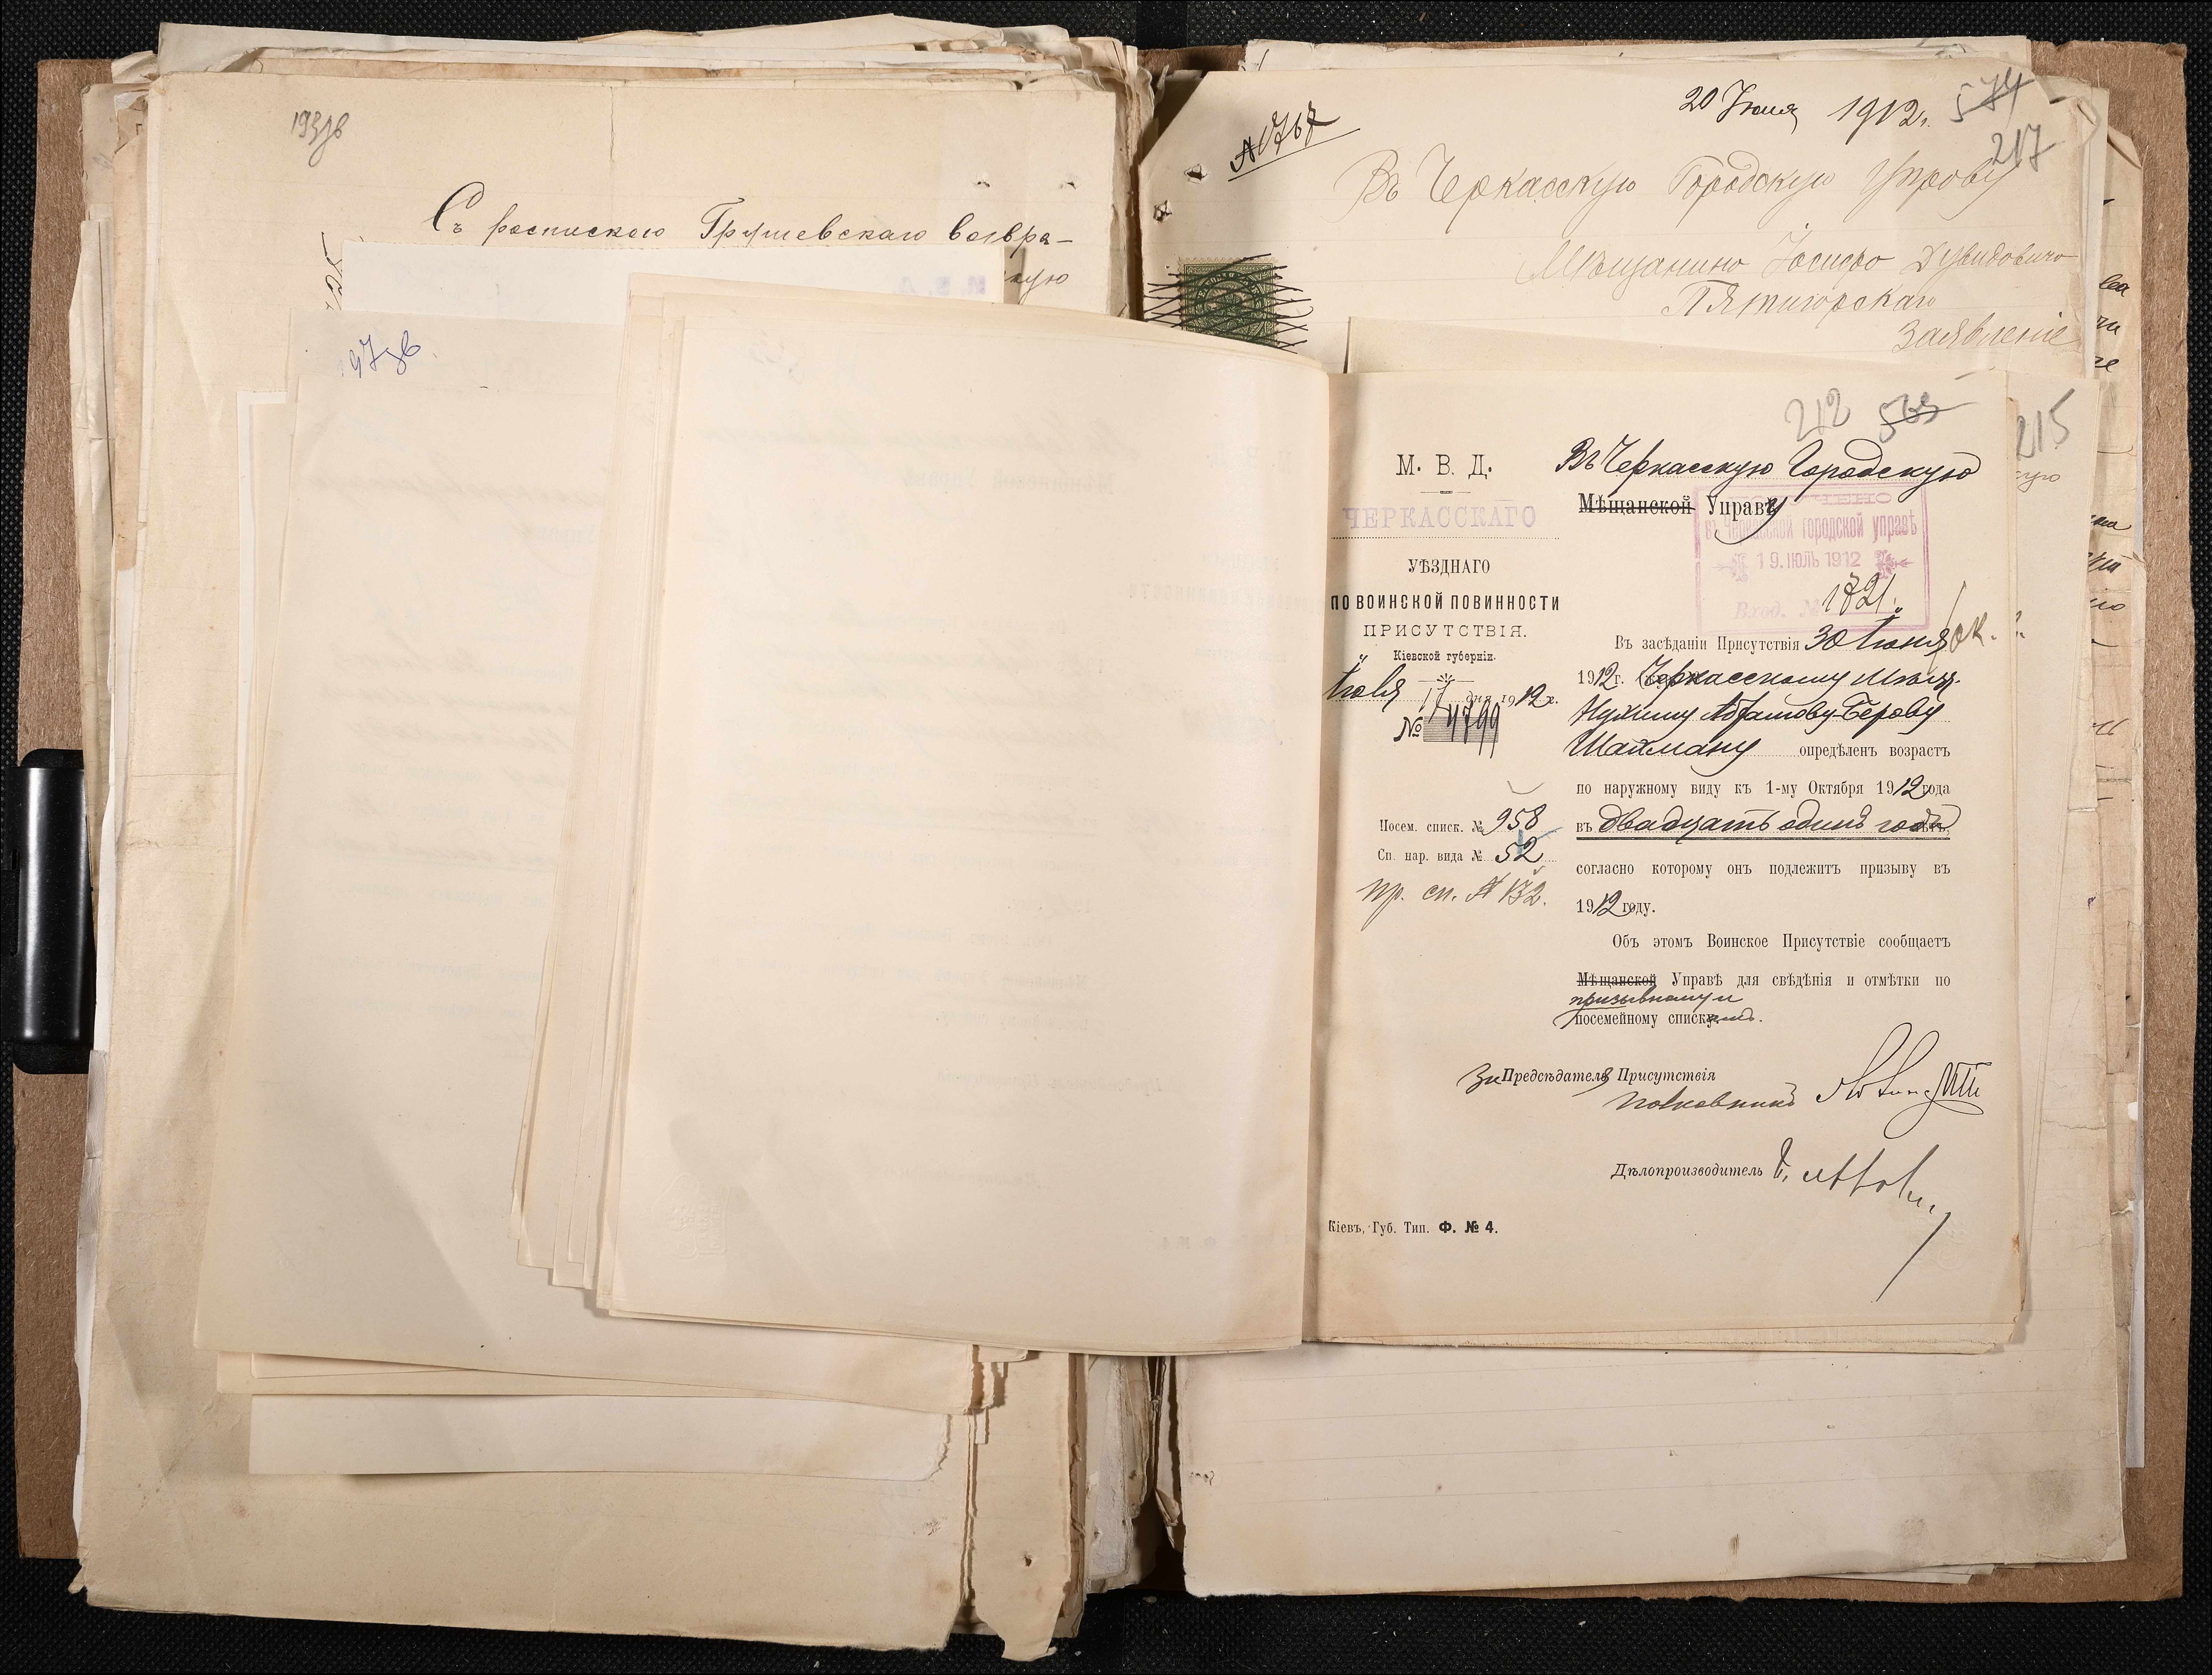 193зв
Съ роспискою Грушевскаго возвра-
кую
197зв
20 Іюня 1912г. 574
217
№1767
Въ Черкасскую Городскую Управу
Мѣщанина Іосифа Дувидовича
Пятигорскаго
Заявленіе
215
212 569
М. В. Д.
ЧЕРКАССКАГО
УѢЗДНАГО
ПО ВОИНСКОЙ ПОВИННОСТИ
ПРИСУТСТВІЯ.
Кіевской губерніи.
Іюля 17 дня 1912 г.
№ 4799
Посем. списк. № 958
Сп. нар. вида № 52
пр. сп. № 132.
Въ Черкасскую Городскую
Мѣщанской Управу
ПОЛУЧЕНО
въ Черкасской городской управѣ
19. ІЮЛЬ 1912
Вход. № 1721.
Въ засѣданіи Присутствія 30 Іюня
1912 г. Черкасскому мѣщ.
Нухиму Абрамову-Берову
Шайману опредѣленъ возрастъ
по наружному виду къ 1-му Октября 1912 года
въ двадцать одинъ годъ,
согласно которому онъ подлежитъ призыву въ
1912 году.
Объ этомъ Воинское Присутствіе сообщаетъ
Мѣщанской Управѣ для свѣдѣнія и отмѣтки по
призывному и
посемейному спискамъ.
За Предсѣдателя Присутствія
Полковникъ
Дѣлопроизводитель
Кіевъ, Губ. Тип. Ф. № 4.